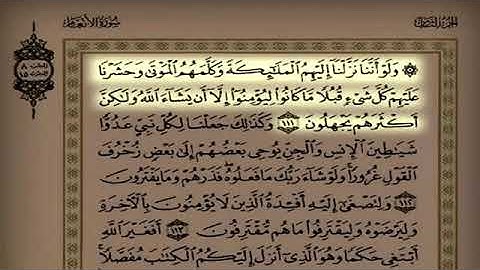 سورة الأنعام
الجزء الثامن
۞ وَلَوْ أَنَّنَا نَزَّلْنَا إِلَيْهِمُ الْمَلَائِكَةَ وَكَلَّمَهُمُ الْمَوْتَىٰ وَحَشَرْنَا
عَلَيْهِمْ كُلَّ شَيْءٍ قُبُلًا مَّا كَانُوا لِيُؤْمِنُوا إِلَّا أَن يَشَاءَ اللَّهُ وَلَٰكِنَّ
أَكْثَرَهُمْ يَجْهَلُونَ ١١١ وَكَذَٰلِكَ جَعَلْنَا لِكُلِّ نَبِيٍّ عَدُوًّا
شَيَاطِينَ الْإِنسِ وَالْجِنِّ يُوحِي بَعْضُهُمْ إِلَىٰ بَعْضٍ زُخْرُفَ
الْقَوْلِ غُرُورًا وَلَوْ شَاءَ رَبُّكَ مَا فَعَلُوهُ فَذَرْهُمْ وَمَا يَفْتَرُونَ
١١٢ وَلِتَصْغَىٰ إِلَيْهِ أَفْئِدَةُ الَّذِينَ لَا يُؤْمِنُونَ بِالْآخِرَةِ
وَلِيَرْضَوْهُ وَلِيَقْتَرِفُوا مَا هُم مُّقْتَرِفُونَ ١١٣ أَفَغَيْرَ اللَّهِ
أَبْتَغِي حَكَمًا وَهُوَ الَّذِي أَنزَلَ إِلَيْكُمُ الْكِتَابَ مُفَصَّلًا